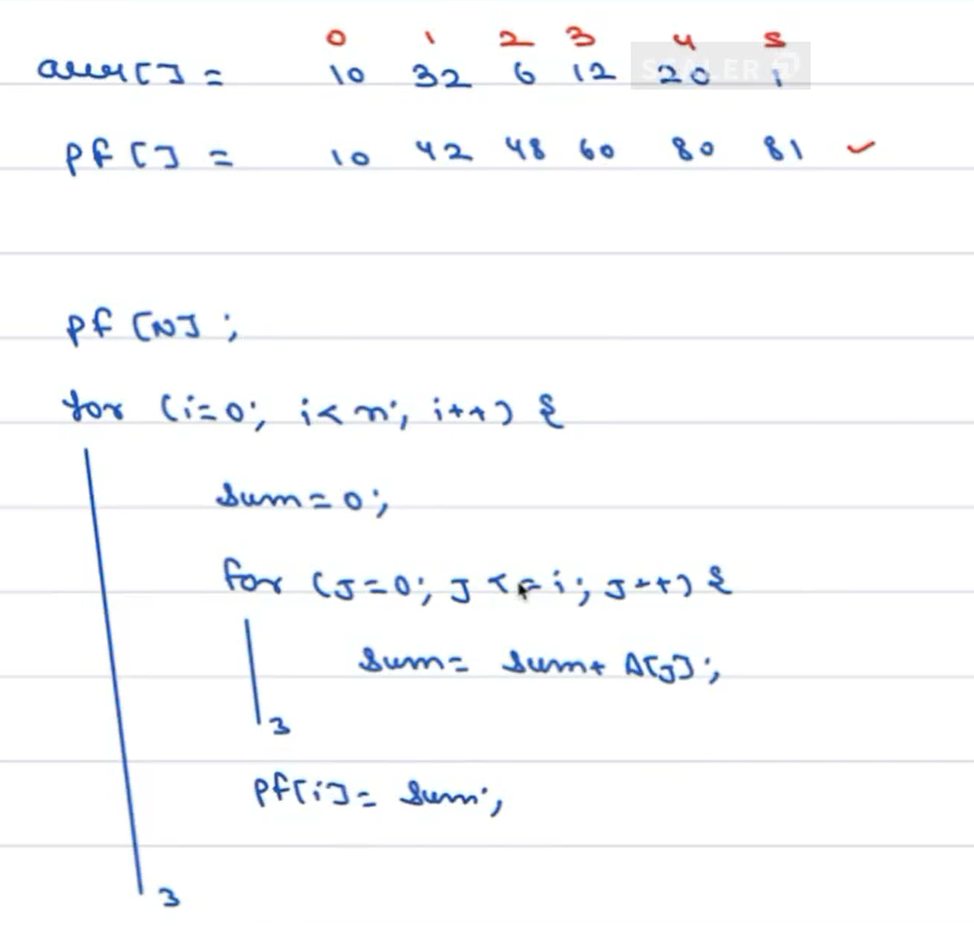 0 1 2 3 4 5
arr[] = 10 32 6 12 20 1
SCALER
pf[] = 10 42 48 60 80 81
pf[N];
for (i=0; i<n; i++) {
sum=0;
for (J=0; J<=i; J++) {
sum= sum+ A[J];
}
pf[i]= sum;
}